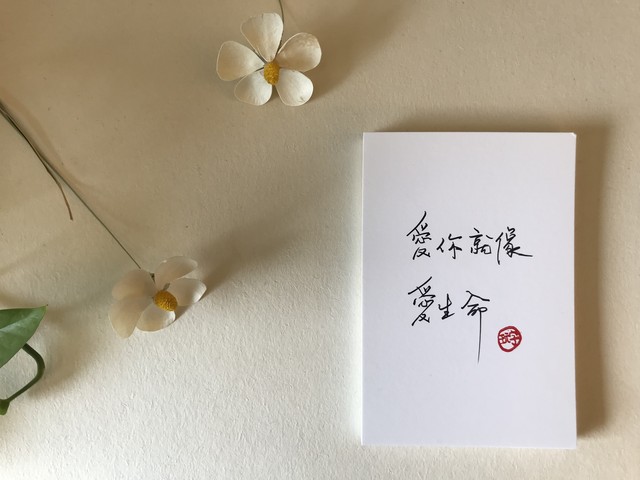 愛你就像
愛生命